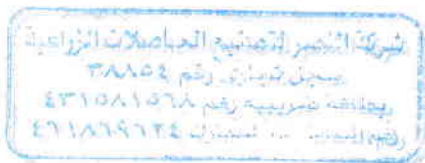 شركة النصر لتصنيع الحاصلات الزراعية
سجل تجارى رقم ٣٨٨٥٤
بطاقة ضريبية رقم ٤٣١٥٨١٥٦٨
رقم ... ٤٦١٨٦٩٦٣٤